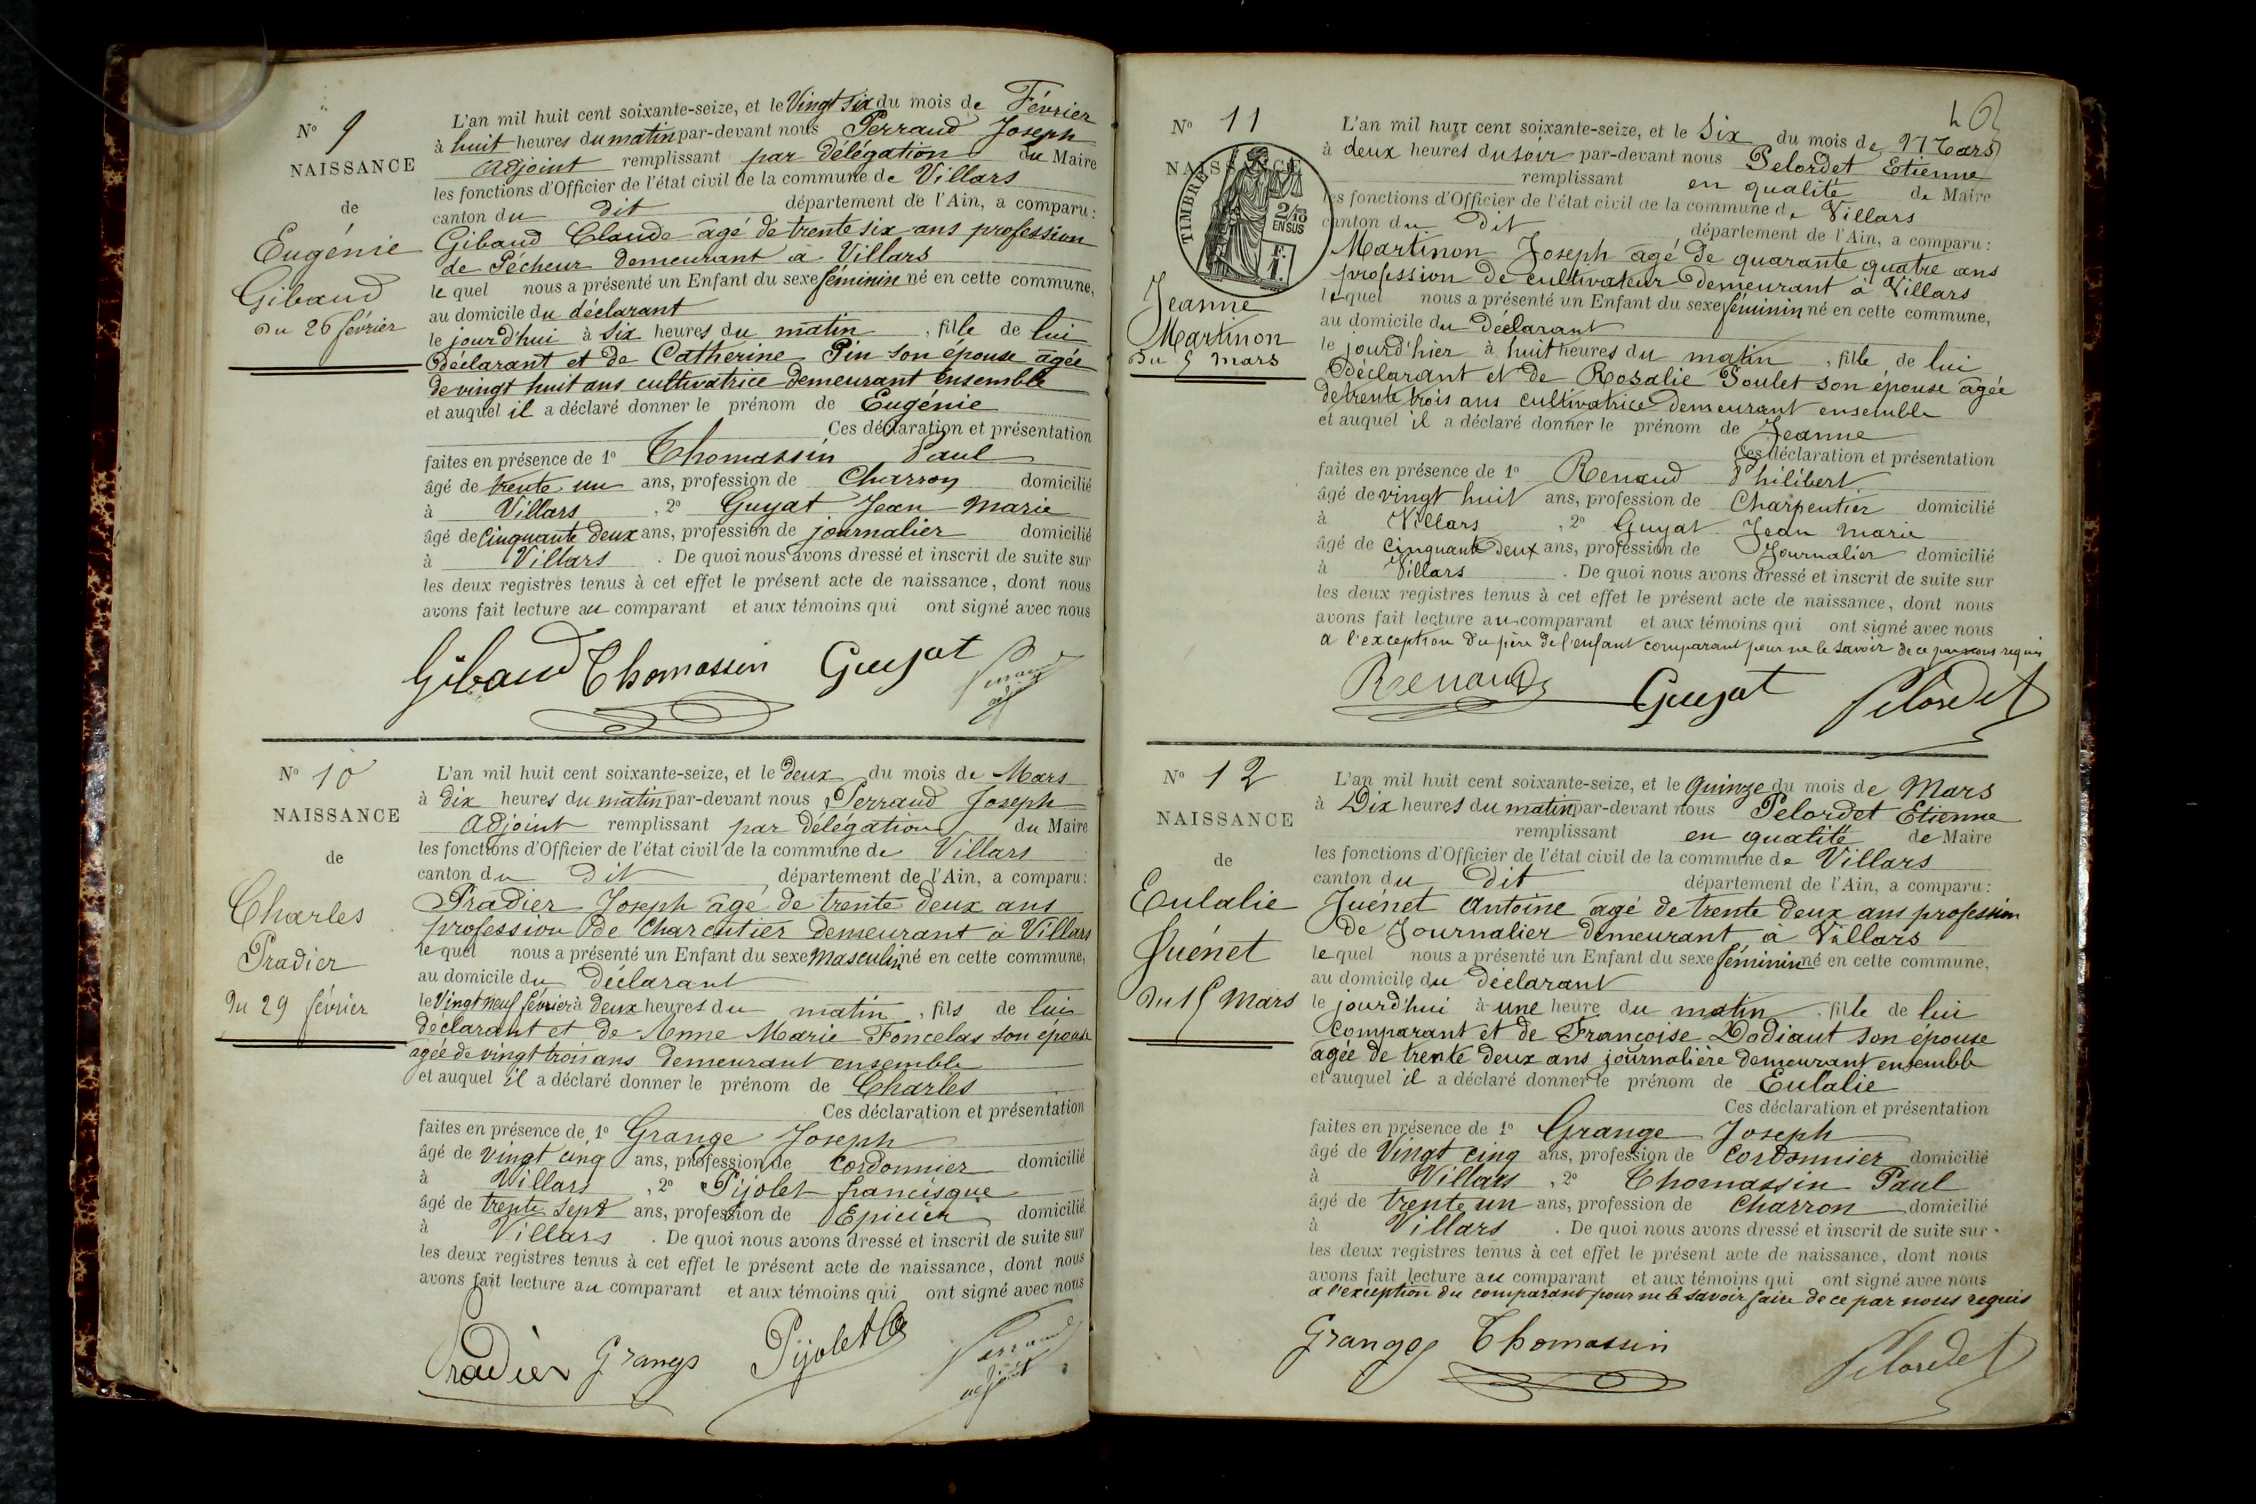 N° 9
NAISSANCE
de
Eugénie
Gibaud
Du 26 février
L'an mil huit cent soixante-seize, et le Vingt six du mois de Février
à huit heures du matin par-devant nous Perraud Joseph
Adjoint remplissant par délégation du Maire
les fonctions d'Officier de l'état civil de la commune de Villars
canton du dit département de l'Ain, a comparu:
Gibaud Claude agé de trente six ans profession
de Pécheur demeurant à Villars
le quel nous a présenté un Enfant du sexe féminin né en cette commune,
au domicile du déclarant
le jourd'hui à six heures du matin, fille de lui
Déclarant et de Catherine Pin son épouse agée
de vingt huit ans cultivatrice demeurant ensemble
et auquel il a déclaré donner le prénom de Eugénie
Ces déclaration et présentation
faites en présence de 1° Thomassin Paul
âgé de trente un ans, profession de Charron domicilié
à Villars, 2° Guyat Jean Marie
âgé de Cinquante deux ans, profession de journalier domicilié
à Villars. De quoi nous avons dressé et inscrit de suite sur
les deux registres tenus à cet effet le présent acte de naissance, dont nous
avons fait lecture au comparant et aux témoins qui ont signé avec nous
Gibaud Thomassin Guyat Perraud adj
N° 10
NAISSANCE
de
Charles
Pradier
Du 29 février
L'an mil huit cent soixante-seize, et le deux du mois de Mars
à dix heures du matin par-devant nous Perraud Joseph
Adjoint remplissant par délégation du Maire
les fonctions d'Officier de l'état civil de la commune de Villars
canton du dit département de l'Ain, a comparu:
Pradier Joseph agé de trente deux ans
profession de Charcutier demeurant à Villars
le quel nous a présenté un Enfant du sexe Masculin né en cette commune,
au domicile du Déclarant
le Vingt neuf février à deux heures du matin, fils de lui
déclarant et de Anne Marie Foncelas son épouse
agée de vingt trois ans demeurant ensemble
et auquel il a déclaré donner le prénom de Charles
Ces déclaration et présentation
faites en présence de 1° Grange Joseph
âgé de vingt cinq ans, profession de cordonnier domicilié
à Villars, 2° Pijolet francisque
âgé de trente sept ans, profession de Epicier domicilié
à Villars. De quoi nous avons dressé et inscrit de suite sur
les deux registres tenus à cet effet le présent acte de naissance, dont nous
avons fait lecture au comparant et aux témoins qui ont signé avec nous
Pradier Grange Pijolet Perraud adjoint
N° 11
NAISSANCE
TIMBRE
2/10
EN SUS
Jeanne
Martinon
Du 5 mars
L'an mil huit cent soixante-seize, et le Six du mois de Mars
à deux heures du soir par-devant nous Pelordet Etienne
remplissant en qualité de Maire
les fonctions d'Officier de l'état civil de la commune de Villars
canton du dit département de l'Ain, a comparu:
Martinon Joseph agé de quarante quatre ans
profession de cultivateur demeurant à Villars
lequel nous a présenté un Enfant du sexe féminin né en cette commune,
au domicile du Déclarant
le jourd'hier à huit heures du matin, fille de lui
Déclarant et de Rosalie Poulet son épouse agée
de trente trois ans cultivatrice demeurant ensemble
et auquel il a déclaré donner le prénom de Jeanne
Ces déclaration et présentation
faites en présence de 1° Renaud Philibert
âgé de vingt huit ans, profession de Charpentier domicilié
à Villars, 2° Guyat Jean Marie
âgé de Cinquante deux ans, profession de Journalier domicilié
à Villars. De quoi nous avons dressé et inscrit de suite sur
les deux registres tenus à cet effet le présent acte de naissance, dont nous
avons fait lecture au comparant et aux témoins qui ont signé avec nous
a l'exception du père de l'enfant comparant pour ne le savoir de ce par nous requis
Renaud Guyat Pelordet
N° 12
NAISSANCE
de
Eulalie
Juénet
Du 15 Mars
L'an mil huit cent soixante-seize, et le Quinze du mois de Mars
à Dix heures du matin par-devant nous Pelordet Etienne
remplissant en qualité de Maire
les fonctions d'Officier de l'état civil de la commune de Villars
canton du dit département de l'Ain, a comparu:
Juénet Antoine agé de trente deux ans profession
de Journalier demeurant à Villars
le quel nous a présenté un Enfant du sexe féminin né en cette commune,
au domicile du déclarant
le jourd'hui à une heure du matin, fille de lui
Comparant et de Françoise Dodiaut son épouse
agée de trente deux ans journalière demeurant ensemble
et auquel il a déclaré donner le prénom de Eulalie
Ces déclaration et présentation
faites en présence de 1° Grange Joseph
âgé de Vingt cinq ans, profession de Cordonnier domicilié
à Villars, 2° Thomassin Paul
âgé de trente un ans, profession de Charron domicilié
à Villars. De quoi nous avons dressé et inscrit de suite sur
les deux registres tenus à cet effet le présent acte de naissance, dont nous
avons fait lecture au comparant et aux témoins qui ont signé avec nous
a l'exception du comparant pour ne le savoir faire de ce par nous requis
Grange Thomassin Pelordet